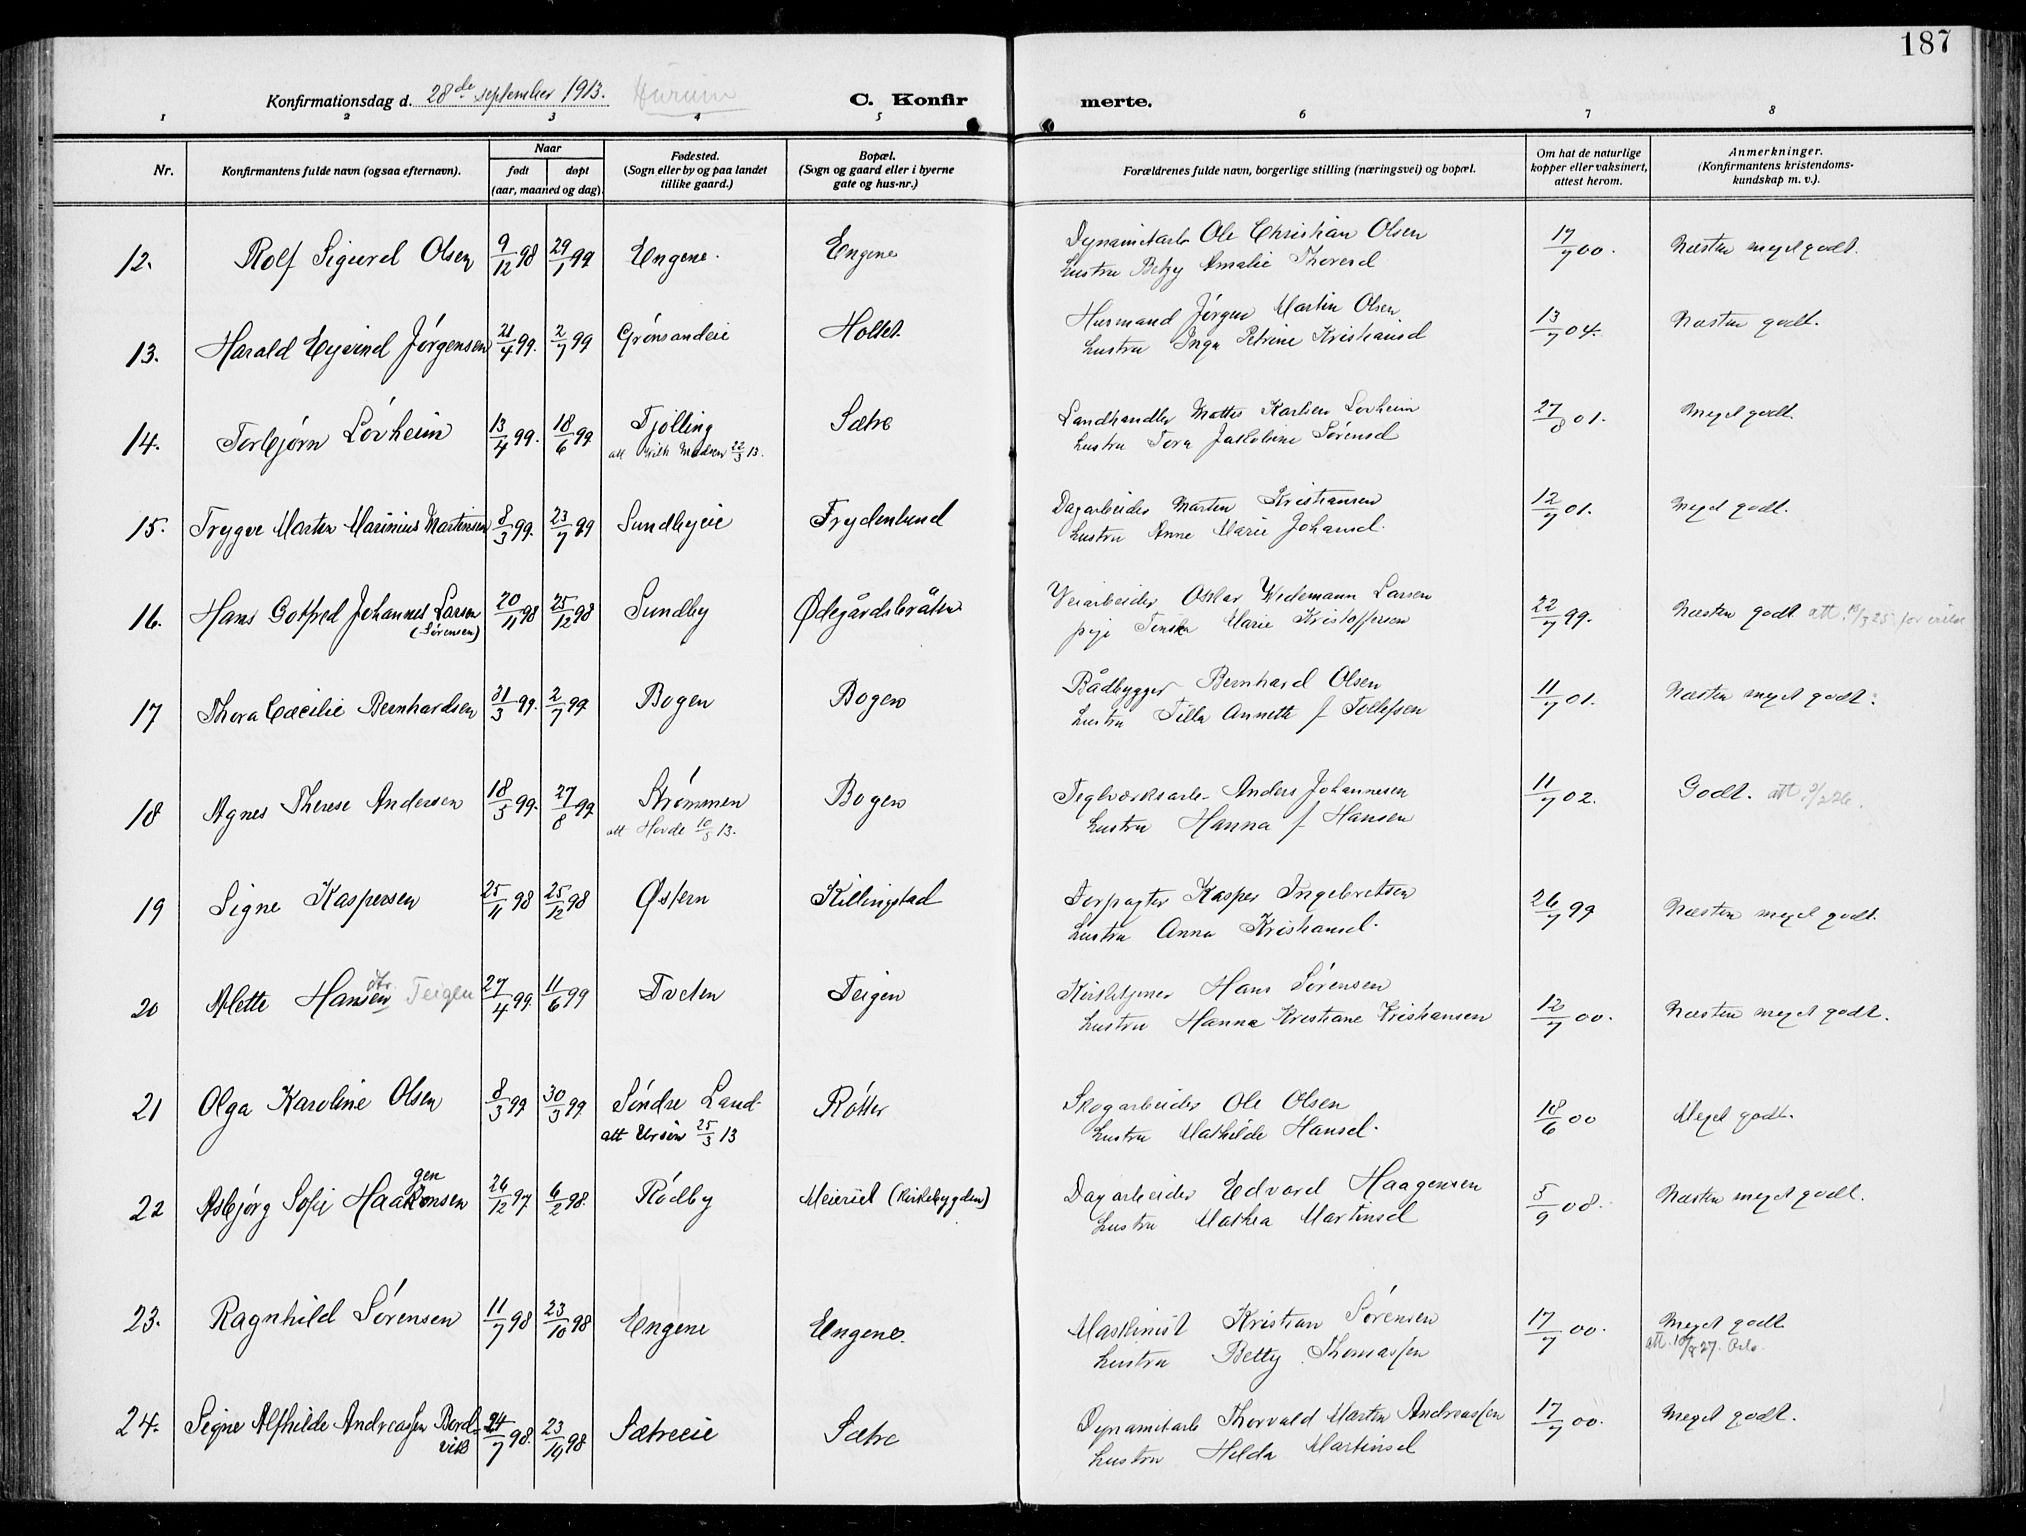 187
Konfirmationsdag d. 28de september 1913. Hurum
C. Konfirmerte.
1 2 3 4 5 6 7 8
Nr.
Konfirmantens fulde navn (ogsaa efternavn).
Naar
født døpt
(aar, maaned og dag).
Fødested.
(Sogn eller by og paa landet
tillike gaard.)
Bopæl.
(Sogn og gaard eller i byerne
gate og hus-nr.)
Forældrenes fulde navn, borgerlige stilling (næringsvei) og bopæl.
Om hat de naturlige
kopper eller vaksinert,
attest herom.
Anmerkninger.
(Konfirmantens kristendoms-
kundskap m. v.).
12. Rolf Sigurd Olsen 9/12 98 29/1 99 Engene. Engene Dynamitarb Ole Christian Olsen 17/7 00. Næsten meget godt.
Hustru Betzy Amalie Thoresd
13. Harald Eyvind Jørgensen 21/4 99. 2/7 99 Grønsandeie Holtet. Husmand Jørgen Martin Olsen 13/7 04. Næsten godt.
Hustru Inga Petrine Kristiansd
14. Torbjørn Lövheim 13/4 99. 18/6 99 Tjölling Sætre Landhandler Mattis Karlsen Lovheim 27/8 01. Meget godt.
att Madsen 22/3 13. Hustru Tora Jakobine Sørensd
15. Trygve Marten Marinius Martinsen 8/3 99. 23/7 99 Sundbyeie Frydenlund Dagarbeider Marten Kristiansen 12/7 01. Meget godt.
Hustru Anne Marie Johansd.
16. Hans Gotfred Johannes Larsen 20/11 98 25/12 98 Sundby Ødegårdsbråten Veiarbeider Oskar Wedemann Larsen 22/7 99. Næsten godt att. 18/3 25
(Sørensen) pige Marie Kristoffersen
17 Thora Cæcilie Bernhardsen 31/3 99. 2/7 99 Bogen Bogen Bådbygger Bernhard Olsen 11/7 01. Næsten meget godt.
Hustru Tilla Annette f Tollefsen
18 Agnes Therese Andersen 18/3 99. 27/8 99 Strømmen Bogen Teglværksarb. Anders Johannesen 11/7 02. Godt.
att Hovde 10/5 13. Hustru Hanna f Hansen
19 Signe Kaspersen 25/11 98 25/12 98 Østern Killingstad Forpagter Kasper Ingebretsen 26/7 99 Næsten meget godt.
Hustru Anna Kristiansd.
20 Alette Hansen dtr. Teigen 27/4 99. 11/6 99 Tveten Teigen Kirketjener Hans Sørensen 12/7 00. Næsten meget godt.
Hustru Hanna Kristiane Kristiansen
21 Olga Karoline Olsen 8/3 99 30/3 99 Søndre Land Rötter Skogarbeider Ole Olsen 18/6 00 Meget godt.
att Ursin 25/3 13 Hustru Mathilde Hansd.
22 Asbjørg Sofie Haakonsen gen 26/12 97 6/2 98. Rödby Meieriet (Kirkebygden) Dagarbeider Edvard Haagensen 5/9 08. Næsten meget godt.
Hustru Mathea Martinsd
23. Ragnhild Sørensen 11/7 98 23/10 98 Engene Engene. Maskinist Kristian Sørensen 17/7 00. Meget godt
Hustru Betty Thomassen att. 18/8 27. Oslo.
24. Signe Alfhilde Andreassen Bord- 24/7 98. 23/10 98 Sætreeie Sætre Dynamitarb Thorvald Martin Andreassen 17/7 00. Meget godt.
vik Hustru Helda Martinsd